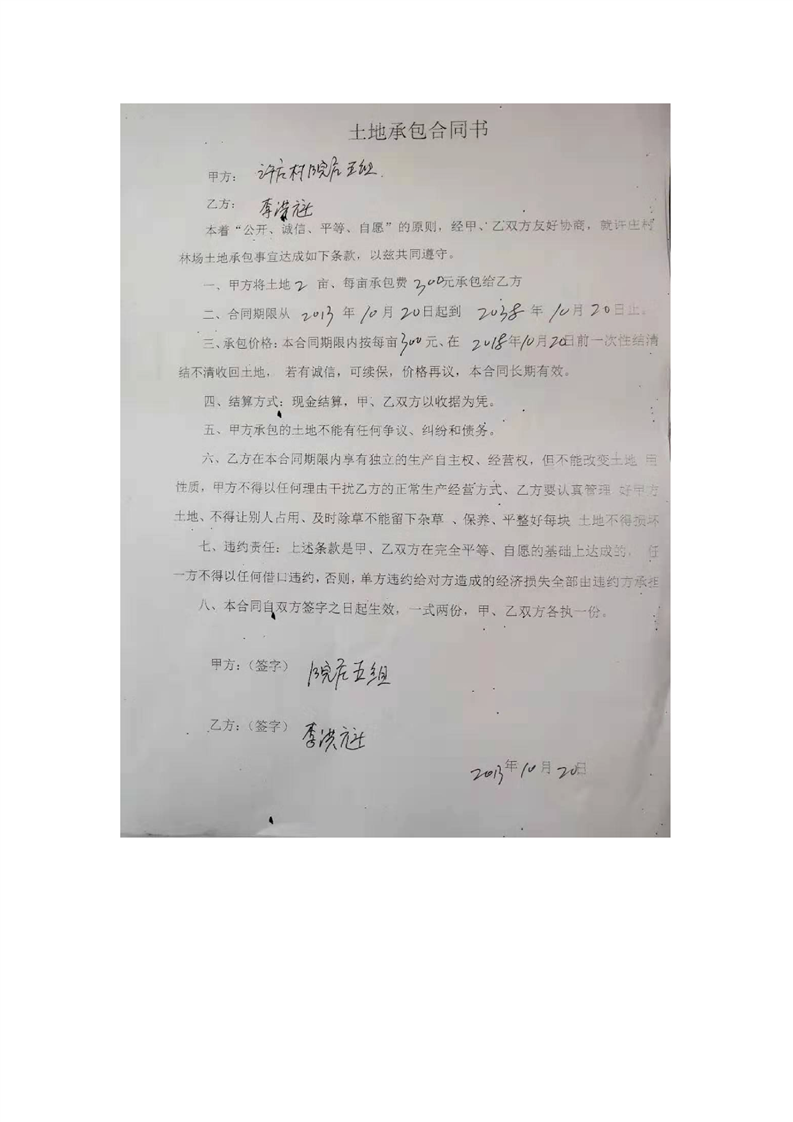 土地承包合同书
甲方： 许庄村院居五组
乙方： 李洪
本着“公开、诚信、平等、自愿”的原则，经甲、乙双方友好协商，就许庄村
林场土地承包事宜达成如下条款，以兹共同遵守。
一、甲方将土地 2 亩、每亩承包费 300元承包给乙方
二、合同期限从 2013 年 10 月 20日起到 2038 年 10 月 20 日止。
三、承包价格：本合同期限内按每亩300元、在 2018年10月20日前一次性结清
结不清收回土地， 若有诚信，可续保，价格再议，本合同长期有效。
四、结算方式：现金结算，甲、乙双方以收据为凭。
五、甲方承包的土地不能有任何争议、纠纷和债务。
六、乙方在本合同期限内享有独立的生产自主权、经营权，但不能改变土地 用
性质，甲方不得以任何理由干扰乙方的正常生产经营方式、乙方要认真管理 好甲方
土地、不得让别人占用、及时除草不能留下杂草 、保养、平整好每块 土地不得损坏
七、违约责任：上述条款是甲、乙双方在完全平等、自愿的基础上达成的， 任
一方不得以任何借口违约，否则，单方违约给对方造成的经济损失全部由违约方承担
八、本合同自双方签字之日起生效，一式两份，甲、乙双方各执一份。
甲方：（签字） 院居五组
乙方：（签字） 李洪
2013年10月20日